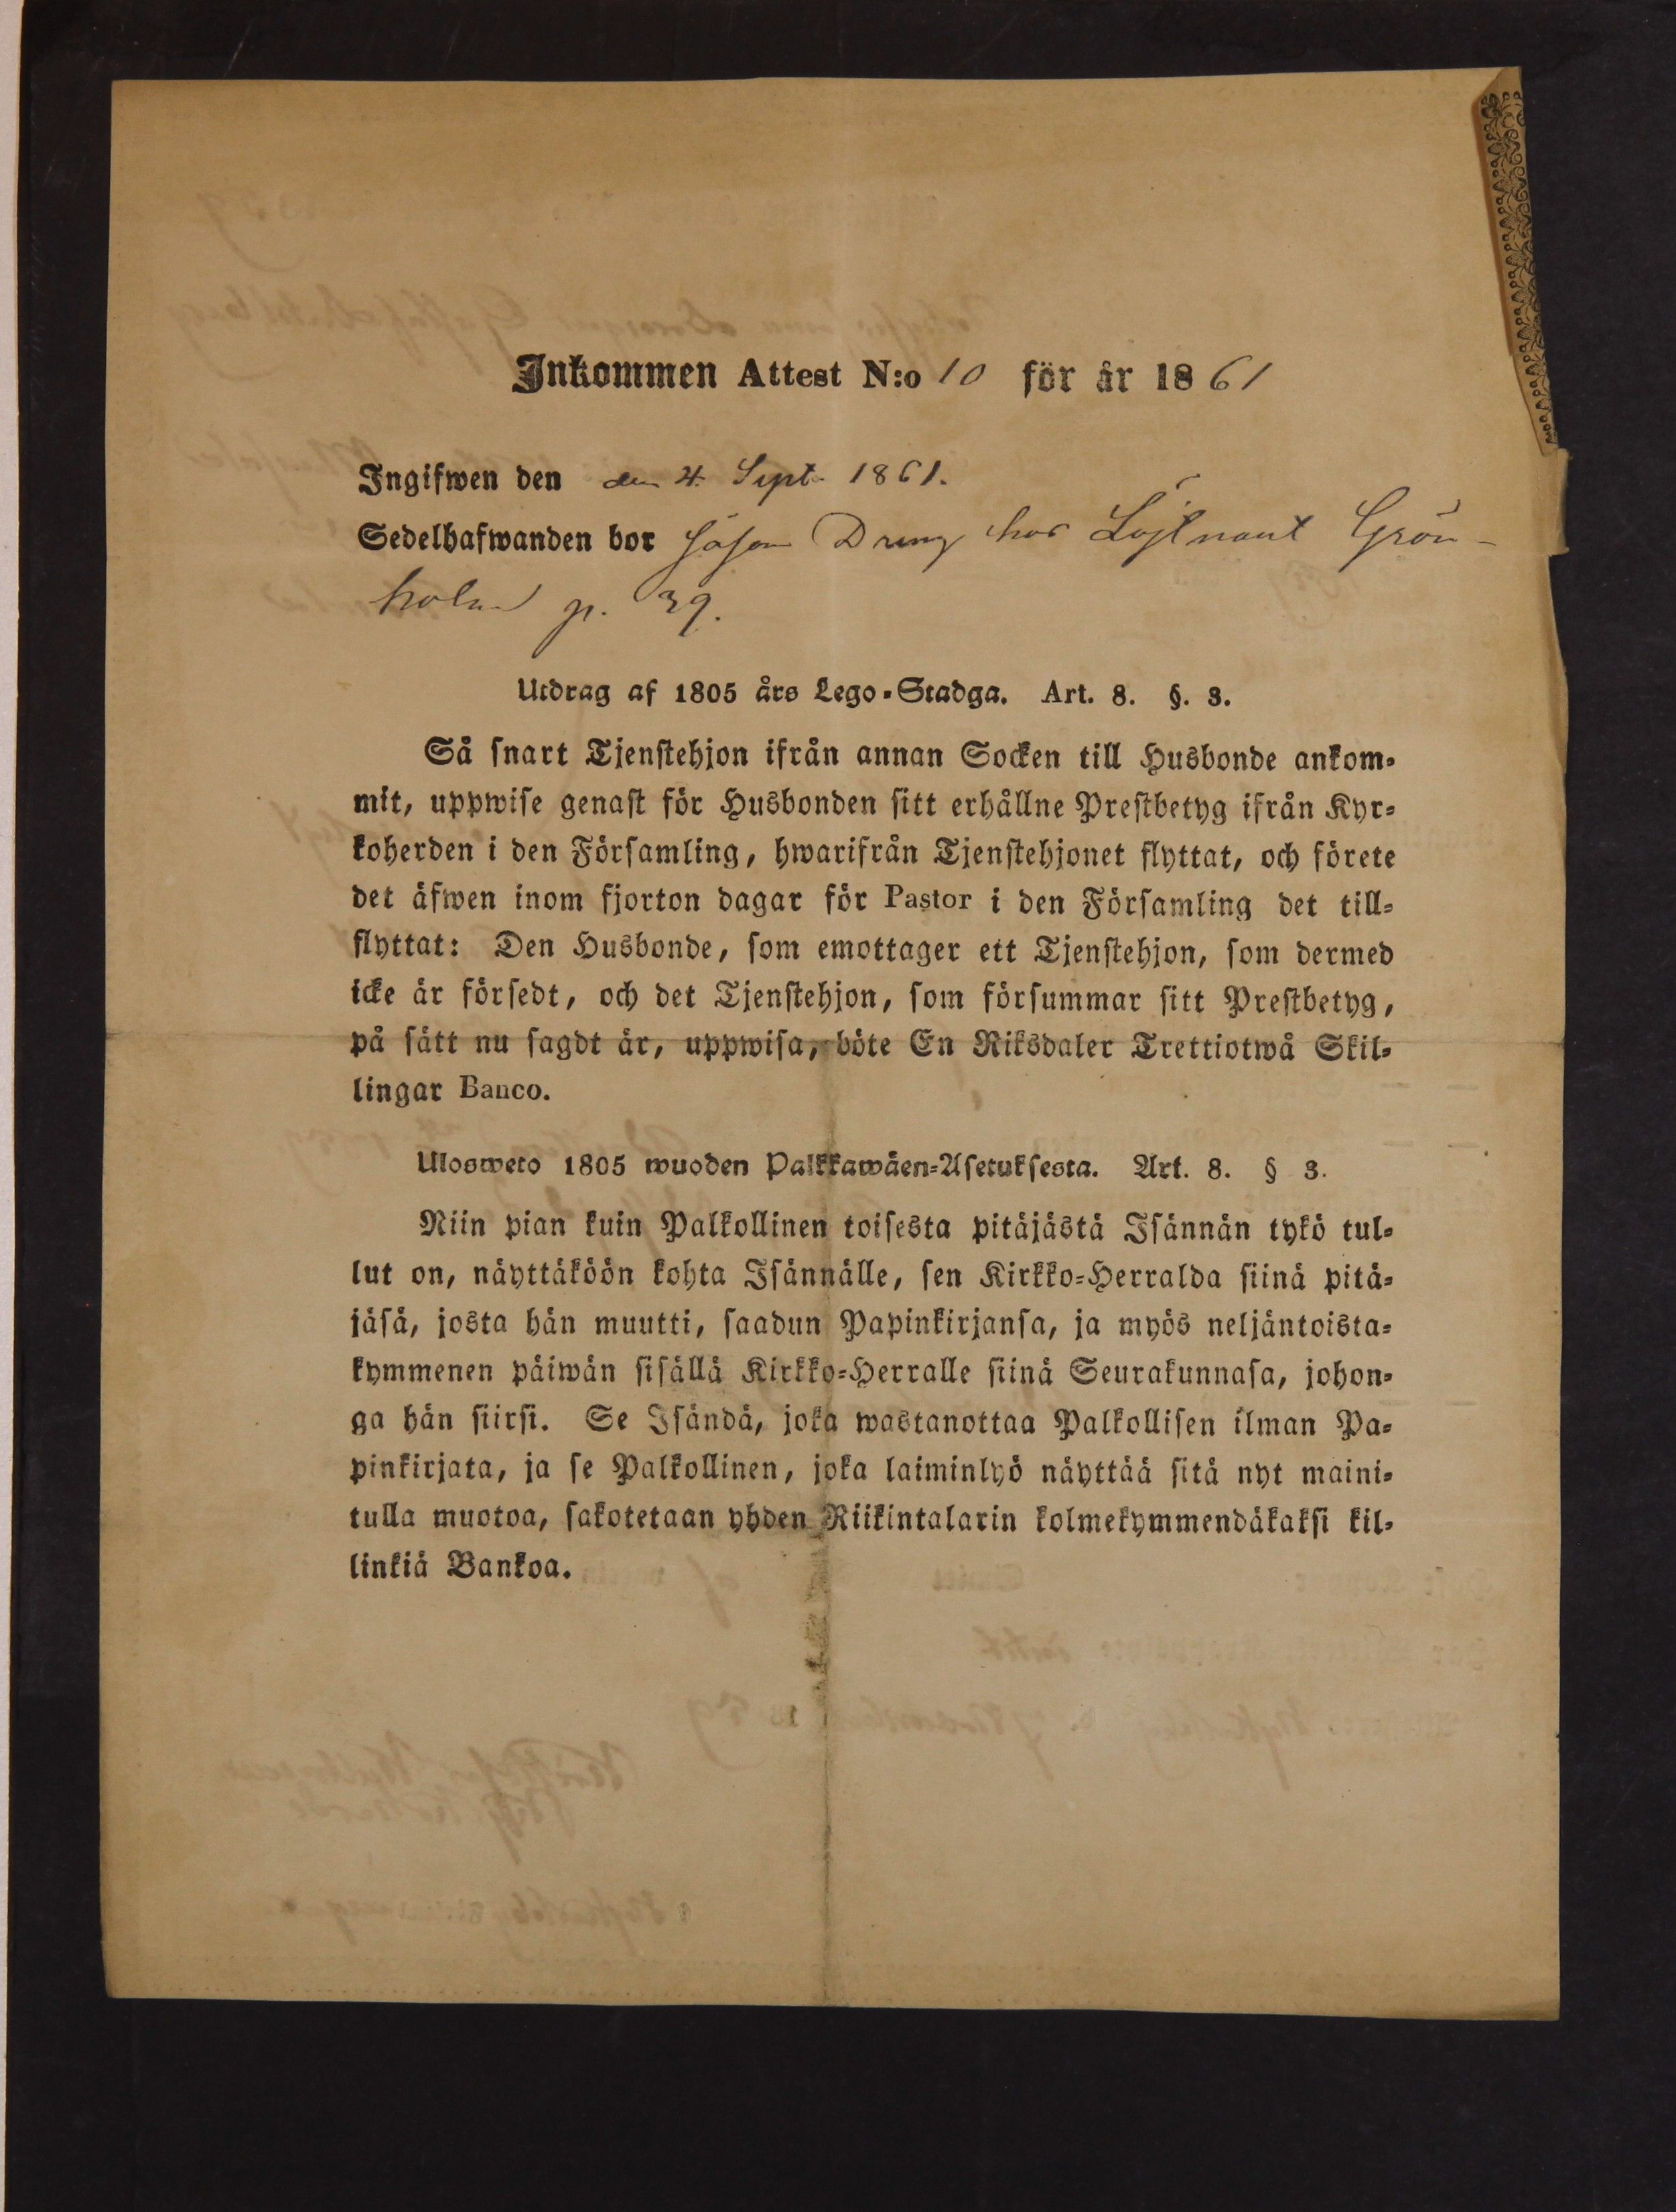 Inkommen Attest N:o 10 för år 1861
Ingifwen den den 4. Sept. 1861.
Sedelhafwanden bor såsom Dreng hos Löjtnant Grön-
holm p. 39.
Utdrag af 1805 års Lego-Stadga. Art. 8. §. 3.
Så snart Tjenstehjon ifrån annan Socken till Husbonde ankom-
mit, uppwise genast för Husbonden sitt erhållne Prestbetyg ifrån Kyr-
koherden i den Församling, hwarifrån Tjenstehjonet flyttat, och förete
det äfwen inom fjorton dagar för Pastor i den Församling det till-
flyttat: Den Husbonde, som emottager ett Tjenstehjon, som dermed
icke är försedt, och det Tjenstehjon, som försummar sitt Prestbetyg,
på sätt nu sagdt är, uppwisa, böte En Riksdaler Trettiotwå Skil-
lingar Banco.
Ulosweto 1805 wuoden Palkkawäen-Asetuksesta. Art. 8. § 3.
Niin pian kuin Palkollinen toisesta pitäjästä Isännän tykö tul-
lut on, näyttäköön kohta Isännälle, sen Kirkko-Herralda siinä pitä-
jäsä, josta hän muutti, saadun Papinkirjansa, ja myös neljäntoista-
kymmenen päiwän sisällä Kirkko-Herralle siinä Seurakunnasa, johon-
ga hän siirsi. Se Isändä, joka wastanottaa Palkollisen ilman Pa-
pinkirjata, ja se Palkollinen, joka laiminlyö näyttää sitä nyt maini-
tulla muotoa, sakotetaan yhden Riikintalarin kolmekymmendäkaksi kil-
linkiä Bankoa.